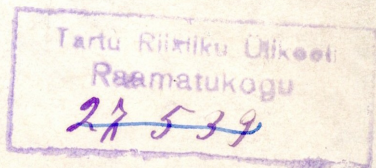 Tartu Riikliku Ülikooli
Raamatukogu
27539